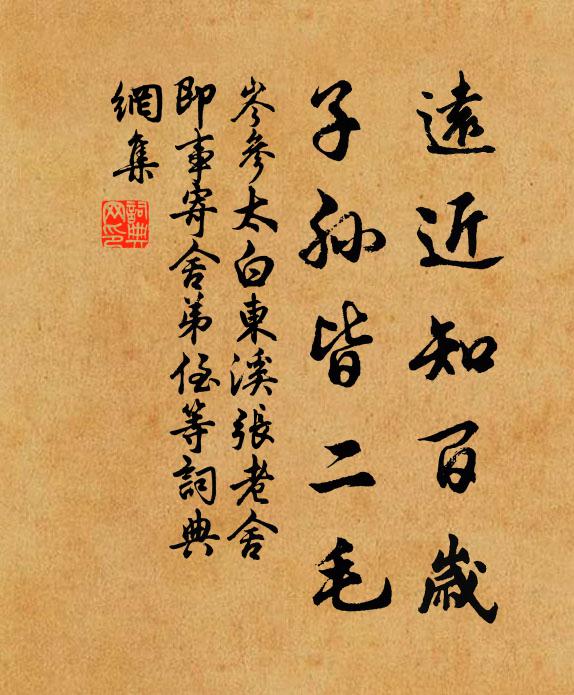 遠近知百歲
子孫皆二毛
岑參太白東溪張老舍
即事寄舍弟侄等詞典
網集
詞典
網印